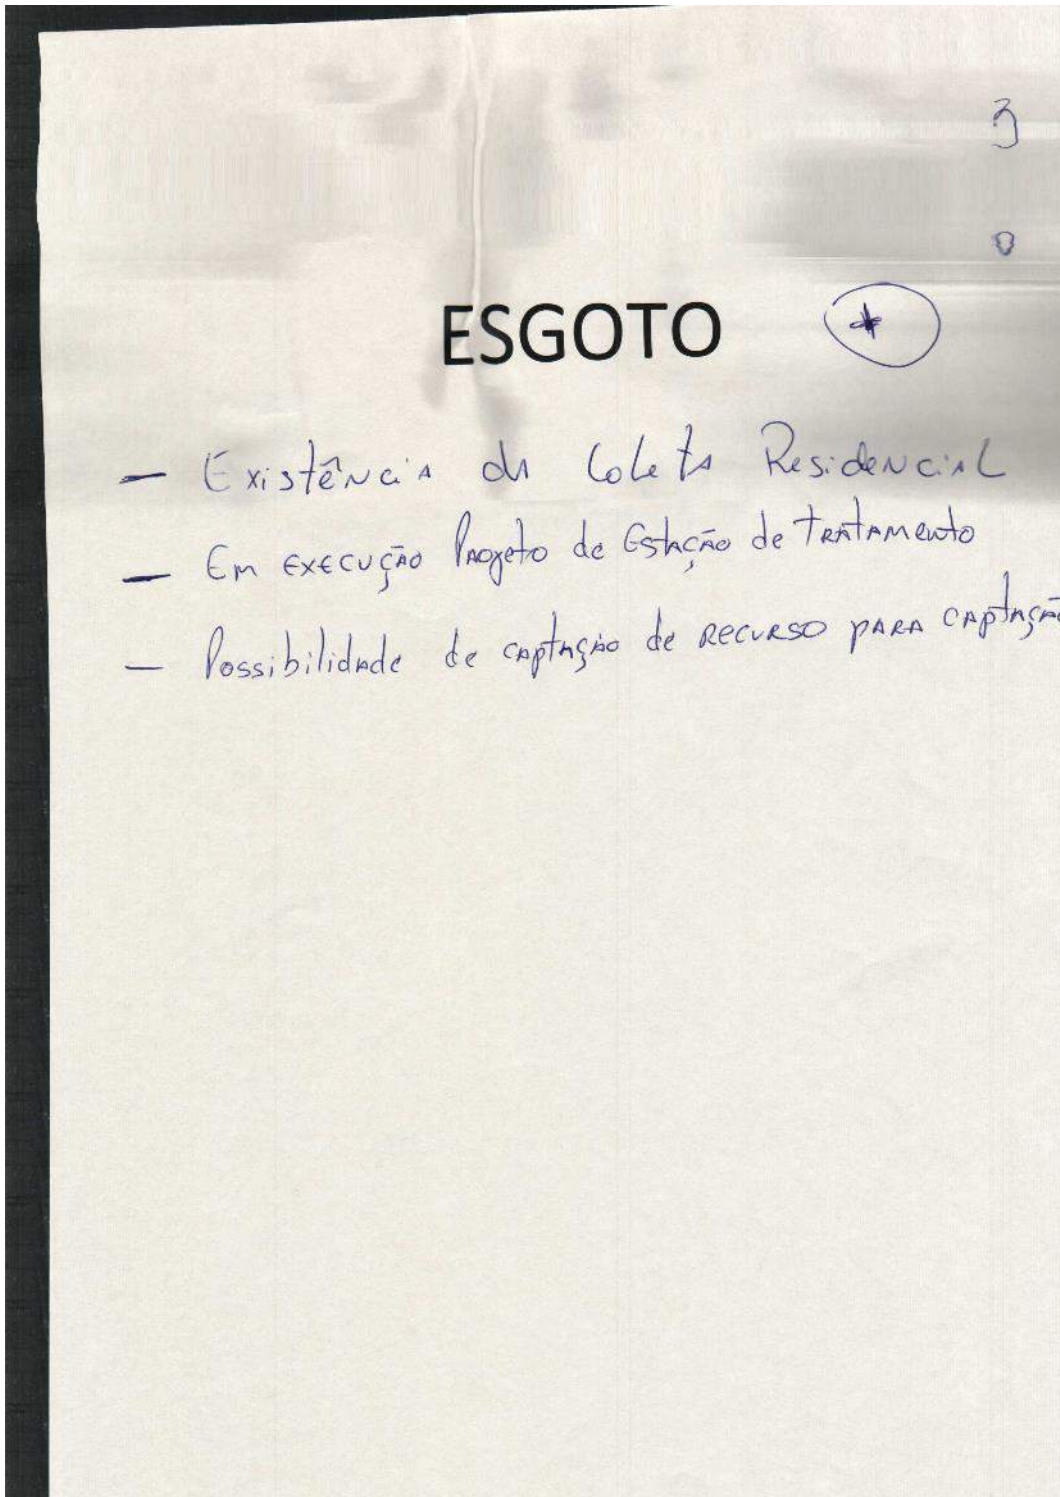 3
0
ESGOTO *
— Existência da Coleta Residencial
— Em execução Projeto de Estação de Tratamento
— Possibilidade de captação de recurso para captação